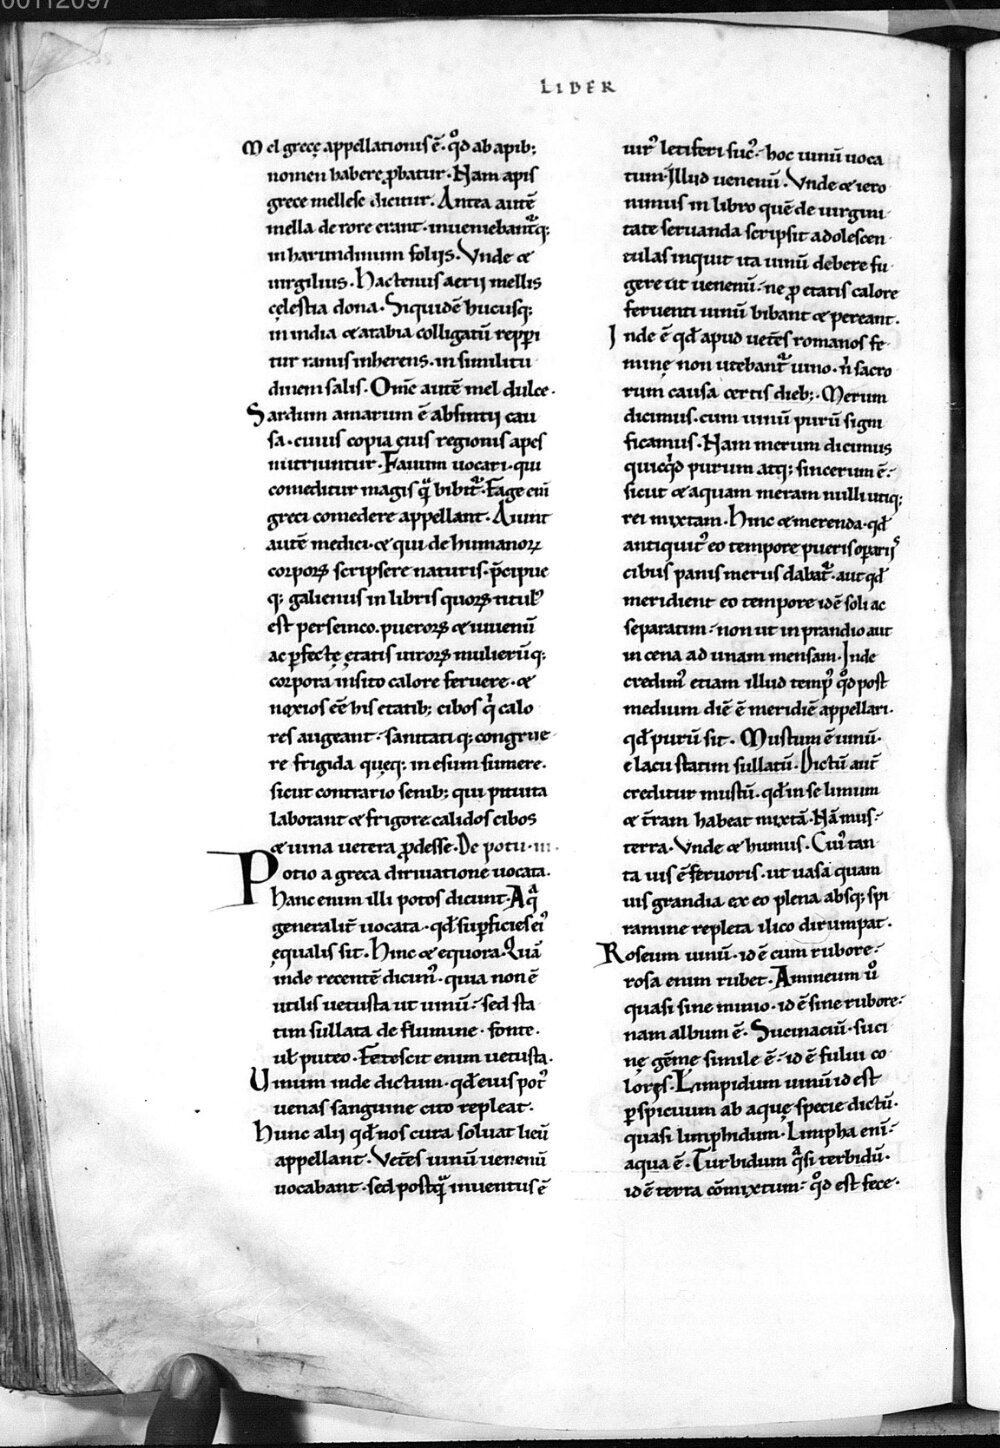 00112097
LIBER
Mel grecę appellationis ē· qd̊ ab apib;
nomen habere ꝓbatur· Nam apis
grece mellese dicitur. Antea autē
mella de rore erant· inueniebant᷑q;
in harundinum foliis. Vnde &
uirgilius. Hactenus aerii mellis
cęlestia dona. Siquidē hucusq;
in india & arabia colligatū repperi
tur ramis inherens· in similitu
dinem salis. Om̄e autē mel dulce.
Sardum amarum ē absintii cau
sa. cuius copia eius regionis apes
nutriuntur. Fauum uocari· qui
comeditur magis quā bibit᷑. Fage eni̅
greci comedere appellant. Aiunt
autē medici· & qui de humanoꝝ
corpoꝝ scripsere naturis· p̄cipue
q; galienus in libris quoꝝ titul᷒
est perseinco. pueroꝝ & iuuenū
ac ꝑfectę ętatis uiroꝝ mulierūq;
corpora insito calore feruere· &
noxios ēē his etatib; cibos qͥ calo
res augeant· sanitatiq; congrue
re frigida queq; in esum sumere.
sicut contrario senib; qui pituita
laborant & frigore calidos cibos
& uina uetera ꝓdesse. De potu· iii.
Potio a greca diriuatione uocata.
Hanc enim illi potos dicunt. Aqͣ
generalit᷑ uocata· qd̄ suꝑficies ei᷒
ęqualis sit. Hinc & equora. Quā
inde recentē dicim᷒. quia non ē
utilis uetusta ut uinū· sed sta
tim sullata de flumine· fonte.
ul̄ puteo. Fetescit enim uetusta.
Vinum inde dictum· qd̄ eius pot᷒
uenas sanguine cito repleat.
Hunc alii qd̄ nos cura soluat lieū
appellant. Vet̄es uinū uenenū
uocabant· sed postqͣ̄ inuentus ē
uir᷒ letiferi suc᷒· hoc uinū uoca
tum· Illud uenenū. Vnde & iero
nimus in libro quē de uirgini
tate seruanda scripsit adolescen
tulas inquit ita uinū debere fu
gere ut uenenū· ne ꝓ etatis calore
feruenti uinū bibant & pereant.
Inde ē qd̄ apud uet̄es romanos fe
minę non utebant᷑ uino· n̄ sacro
rum causa certis dieb;. Merum
dicimus· cum uinū purū signi
ficamus. Nam merum dicimus
quicqͥd purum atq; sincerum ē·
sicut & aquam meram nulli utiq;
rei mixtam. Hinc & merenda· qd̄
antiquit᷒ eo tempore pueris oꝑariis
cibus panis merus dabat᷑· aut qd̄
meridient eo tempore idē soli ac
separatim· non ut in prandio aut
in cena ad unam mensam. Inde
credim᷒ etiam illud temp᷒ qd̊ post
medium diē ē meridiē appellari.
qd̄ purū sit. Mustum ē uinū·
e lacu statim sullatū. Dictū aut̄
creditur mustū. qd̄ in se limum
& t̄ram habeat mixtā. Nā mus·
terra· Vnde & humus. Cui᷒ tan
ta uis ē feruoris. ut uasa quam
uis grandia ex eo plena absq; spi
ramine repleta ilico dirumpat.
Roseum uinū· id ē cum rubore·
rosa enim rubet. Amineum ů
quasi sine minio· id ē sine rubore·
nam album ē. Sucinaciū· suci
nę gēme simile ē· id ē fului co
lorẹs. Limpidum uinū id est
ꝑspicuum ab aquę specie dictū.
quasi limphidum. Limpha eni̅·
aqua ē. Turbidum qͣsi terbidū.
id ē terra cōmixtum· qd̊ est fece.